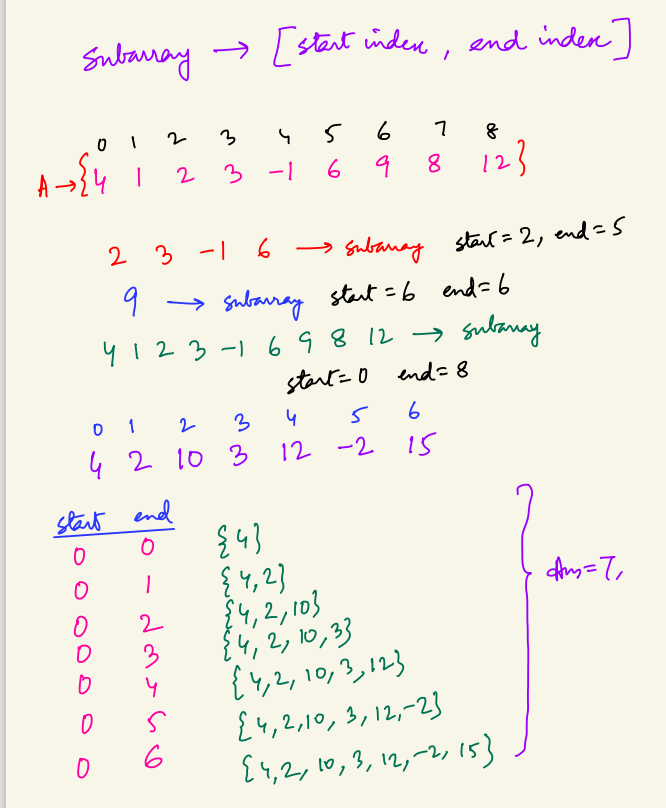 subarray → [start index, end index]
0 1 2 3 4 5 6 7 8
A → {4 1 2 3 -1 6 9 8 12}
2 3 -1 6 → subarray start = 2, end = 5
9 → subarray start = 6 end = 6
4 1 2 3 -1 6 9 8 12 → subarray
start = 0 end = 8
0 1 2 3 4 5 6
4 2 10 3 12 -2 15
start end
0 0 {4}
0 1 {4,2}
0 2 {4,2,10}
0 3 {4,2,10,3}
0 4 {4,2,10,3,12}
0 5 {4,2,10,3,12,-2}
0 6 {4,2,10,3,12,-2,15}
Ans = 7,